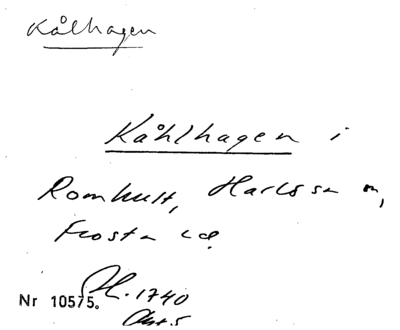 Kålhagen
Kåhlhagen i
Romhult, Harlösa n,
Frosta hd.
Nr 10575. H. 1740
Akt. 5